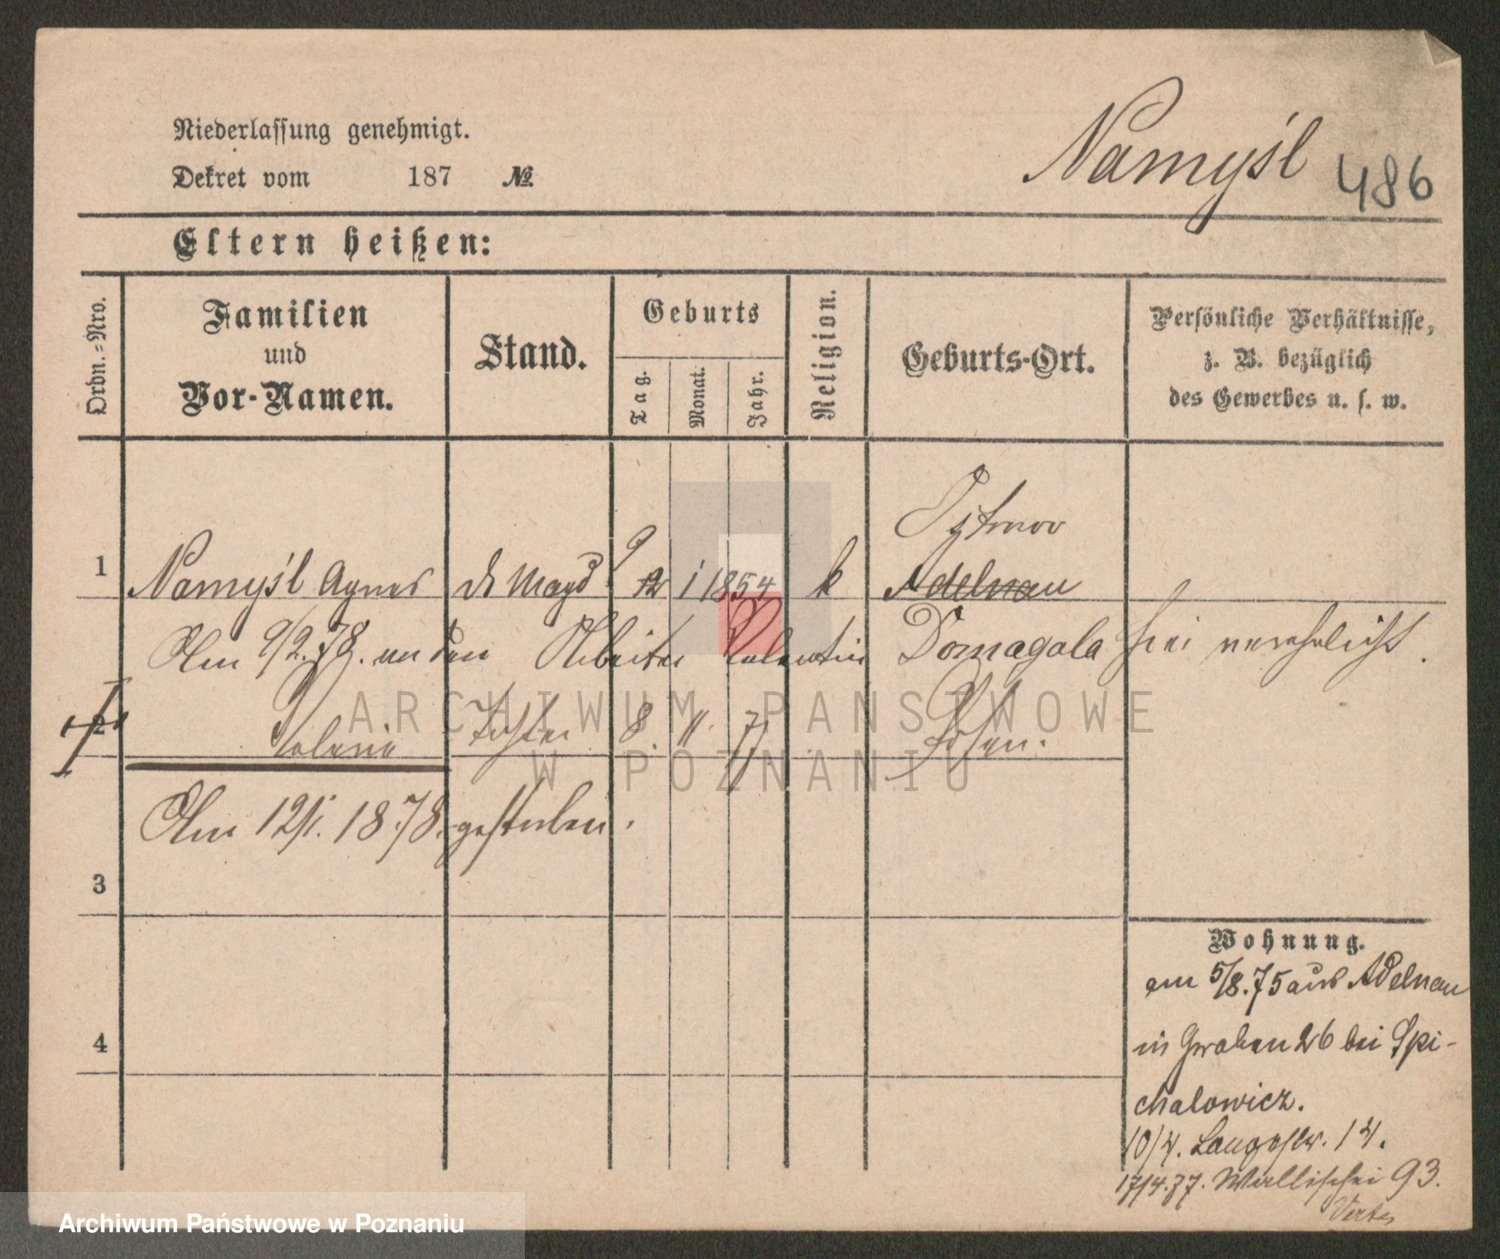 Niederlassung genehmigt.
Dekret vom 187 №.
Namyśl 486
Eltern heißen:
Ordn.-Nro.
Familien
und
Vor-Namen.
Stand.
Geburts
Tag.
Monat.
Jahr.
Religion.
Geburts-Ort.
Persönliche Verhältnisse,
z. B. bezüglich
des Gewerbes u. s. w.
1 Namyśl Agnes d. Magd 9 1 1854 k Adelnau
Am 9/2.78. an den Arbeiter Valentin Domagala hier verehelicht.
2 Valeria Tochter 8. 11. 77 Posen.
Am 12/1. 1878. gestorben.
3
4
Wohnung.
am 5/8.75 aus Adelnau
in Graben 26 bei Spi-
chalowicz.
10/4. Langestr. 14.
17/4.77. Wallischei 93.
ARCHIWUM PAŃSTWOWE
W POZNANIU
Archiwum Państwowe w Poznaniu